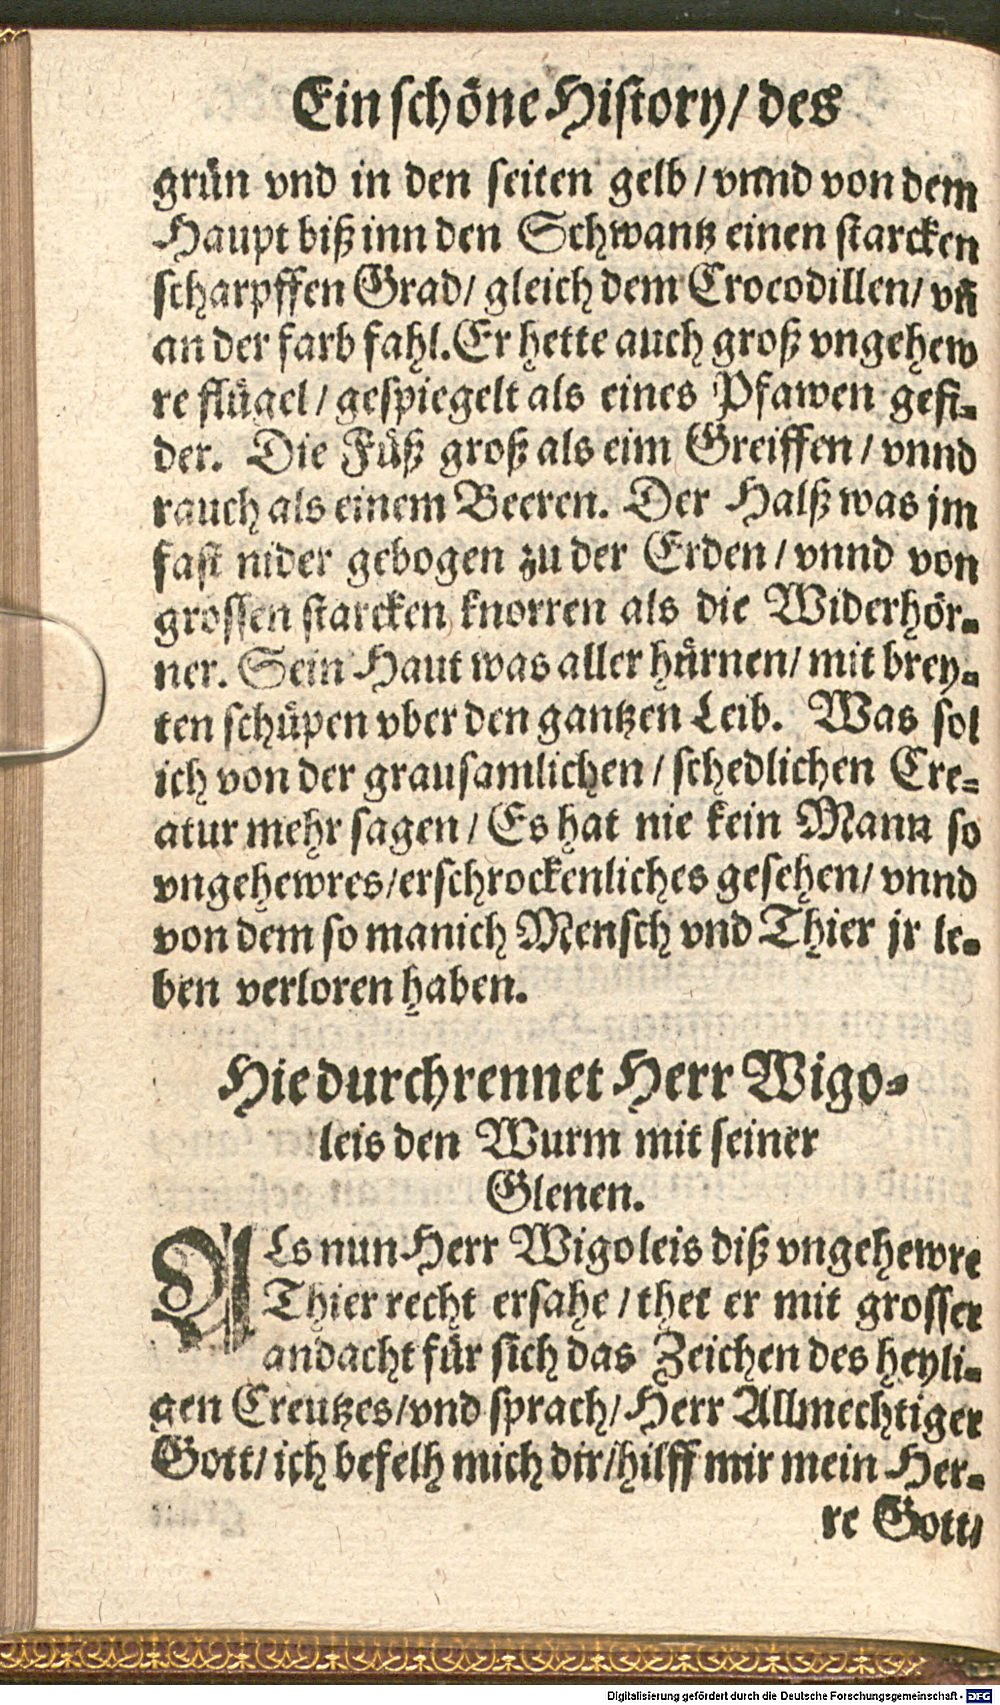 Ein schöne History/ des
grün vnd in den seiten gelb / vnnd von dem
Haupt biß inn den Schwantz einen starcken
scharpffen Grad/ gleich dem Crocodillen/ vñ
an der farb fahl. Er hette auch groß vngehew
re flügel / gespiegelt als eines Pfawen gefi-
der. Die Füß groß als eim Greiffen / vnnd
rauch als einem Beeren. Der Halß was jm
fast nider gebogen zu der Erden / vnnd von
grossen starcken knorren als die Widerhör-
ner. Sein Haut was aller hürnen/ mit brey-
ten schüpen vber den gantzen Leib. Was sol
ich von der grausamlichen / schedlichen Cre-
atur mehr sagen / Es hat nie kein Mann so
vngehewres/erschrockenliches gesehen/ vnnd
von dem so manich Mensch vnd Thier jr le-
ben verloren haben.
Hie durchrennet Herr Wigo-
leis den Wurm mit seiner
Glenen.
ALs nun Herr Wigoleis diß vngehewre
Thier recht ersahe / thet er mit grosser
andacht für sich das Zeichen des heyli-
gen Creutzes/vnd sprach/ Herr Allmechtiger
Gott/ ich befelh mich dir/hilff mir mein Her-
re Gott/
Digitalisierung gefördert durch die Deutsche Forschungsgemeinschaft - DFG